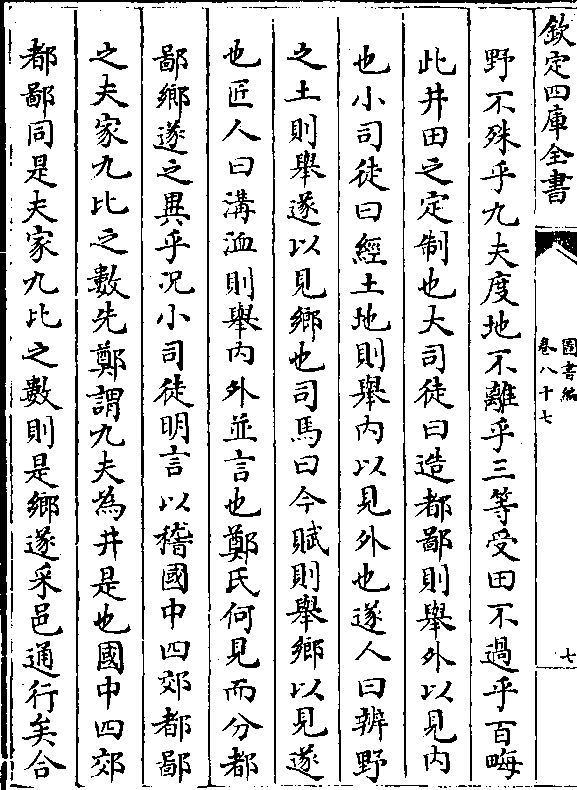 欽定四庫全書
圖書編
卷八十七
七
野不殊乎九夫度地不離乎三等受田不過乎百畮
此井田之定制也大司徒曰造都鄙則舉外以見内
也小司徒曰經土地則舉内以見外也遂人曰辨野
之土則舉遂以見鄉也司馬曰令賦則舉鄉以見遂
也匠人曰溝洫則舉内外並言也鄭氏何見而分都
鄙鄉遂之異乎况小司徒明言以稽國中四郊都鄙
之夫家九比之數先鄭謂九夫為井是也國中四郊
都鄙同是夫家九比之數則是鄉遂采邑通行矣合